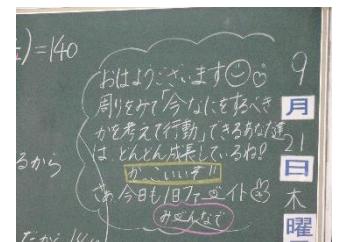 )=140
おはようございます
周りをみて「今なにをするべき
かを考えて行動」できるあなた達
は、どんどん成長しているね!!
かっこいいぞ!!
さぁ今日も1日ファイト
みんなで
るから
だから14
9
月
21
日
木
曜